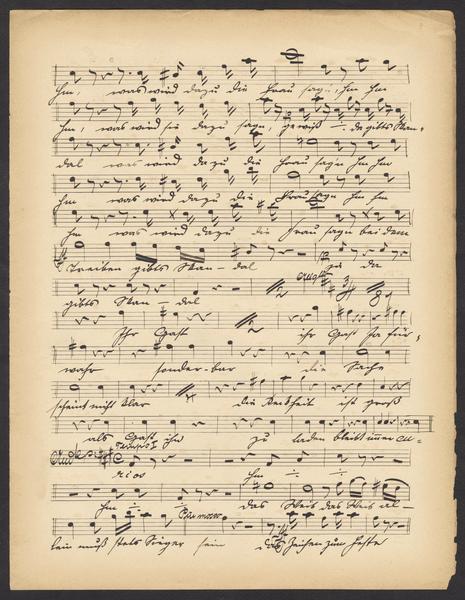 hm, was wird dazu die Frau sagn, hm hm
hm, was wird sie dazu sagn, gewiß ÷. da gibts Skan-
dal was wird dazu die Frau sagn hm hm
hm was wird dazu die Frau sagn hm hm
hm was wird dazu die Frau sagn bei dem
Treiben gibts Skan-dal ja da
gibts Skan-dal
Ihr Gast ihr Gast Ja für-
wahr sonder-bar die Sache
scheint nicht klar die Keckheit ist groß
als Gast ihn zu laden bleibt immer cu-
rios hm ÷ ÷
hm ÷ das Weib das Weib al-
lein muß stets Sieger sein das Zeichen zum Feste